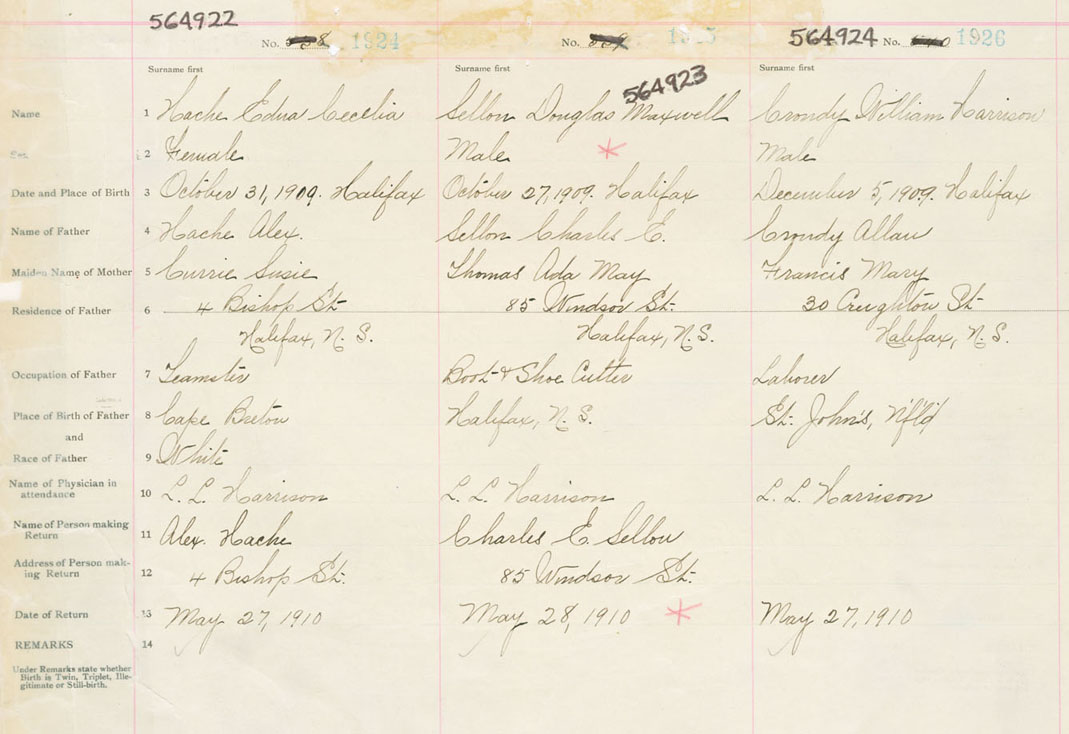 564922
No. 1924
No. 1925
564924 No. 1926
Surname first
Surname first
564923
Surname first
Name 1 Hache Edna Cecelia
Sellon Douglas Maxwell
Crondy William Harrison
Sex. 2 Female
Male *
Male
Date and Place of Birth 3 October 31, 1909. Halifax
October 27, 1909. Halifax
December 5, 1909. Halifax
Name of Father 4 Hache Alex.
Sellon Charles E.
Crondy Allan
Maiden Name of Mother 5 Currie Susie
Thomas Ada May
Francis Mary
Residence of Father 6 4 Bishop St.
85 Windsor St.
30 Creighton St.
Halifax, N. S.
Halifax, N. S.
Halifax, N. S.
Occupation of Father 7 Teamster
Boot & Shoe Cutter
Laborer
Place of Birth of Father 8 Cape Breton
Halifax, N. S.
St. John's, N'f'l'd
and
Race of Father 9 White
Name of Physician in
attendance 10 L. L. Harrison
L. L. Harrison
L. L. Harrison
Name of Person making
Return 11 Alex. Hache
Charles E. Sellon
Address of Person mak-
ing Return 12 4 Bishop St.
85 Windsor St.
Date of Return 13 May 27, 1910
May 28, 1910 *
May 27, 1910
REMARKS 14
Under Remarks state whether
Birth is Twin, Triplet, Ille-
gitimate or Still-birth.